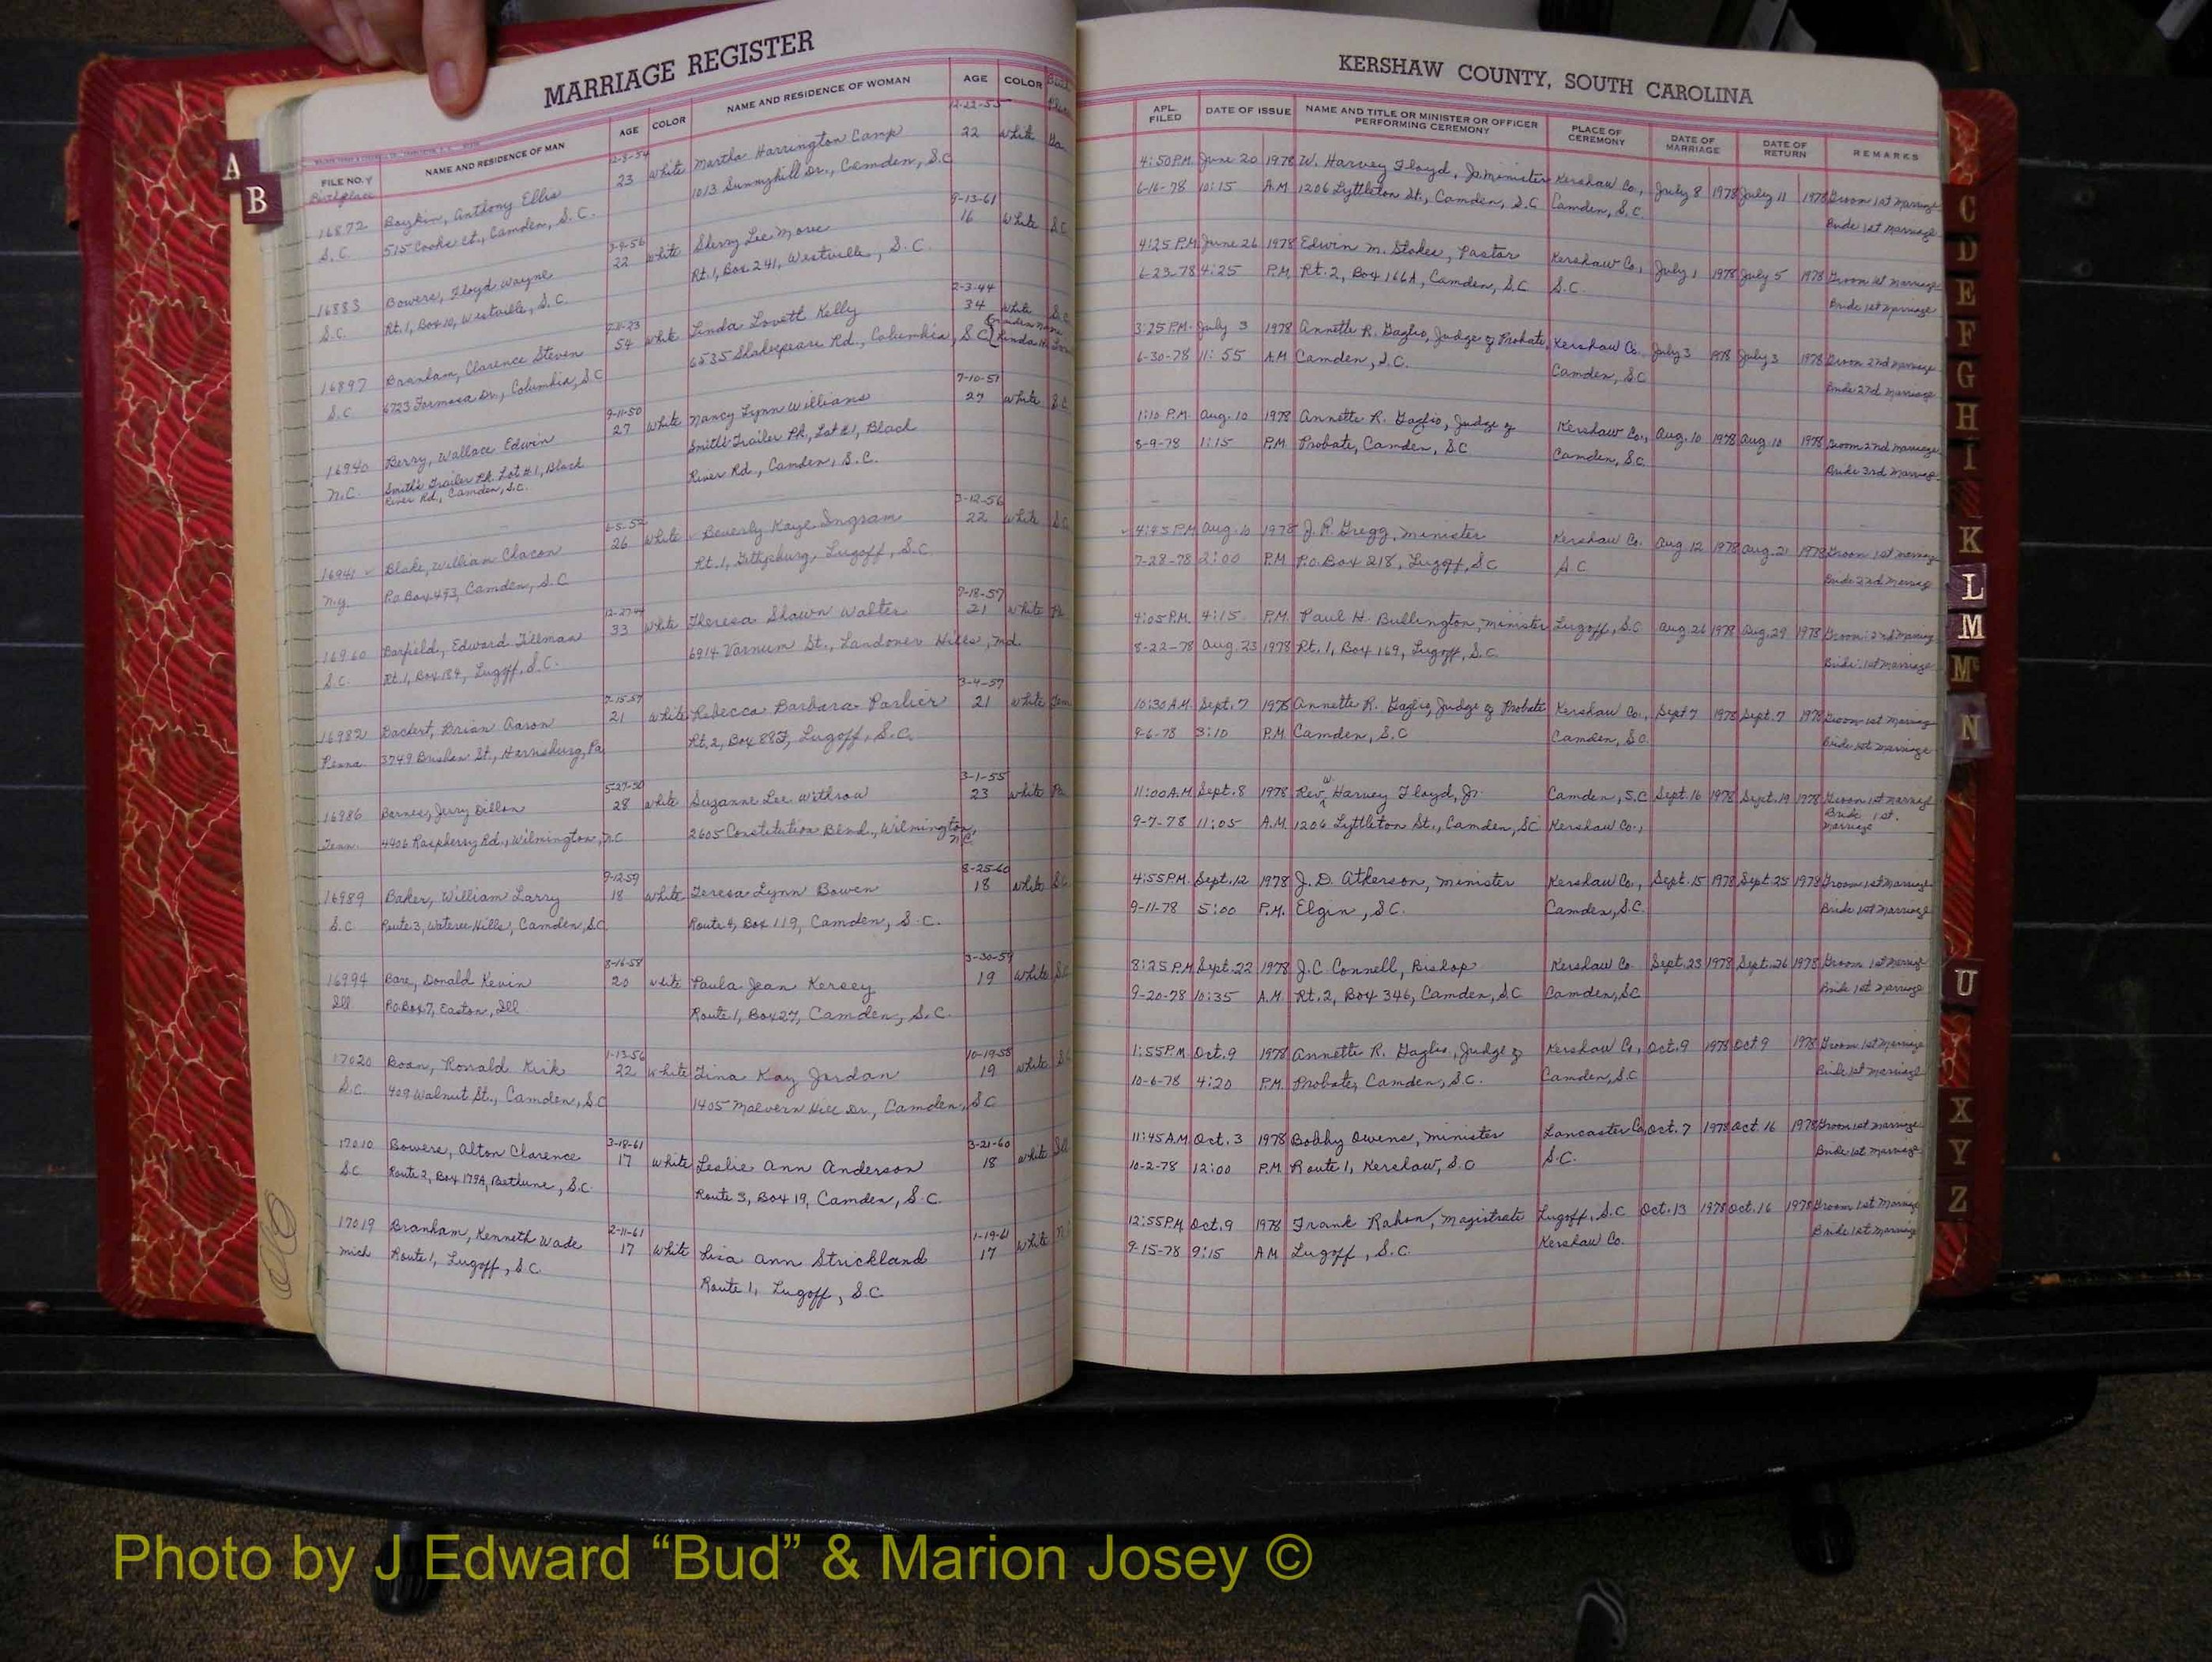 MARRIAGE REGISTER
FILE NO. NAME AND RESIDENCE OF MAN AGE COLOR NAME AND RESIDENCE OF WOMAN AGE COLOR
Birthplace
A
B
12-8-54 12-22-55
16872 Boykin, Anthony Ellis 23 White Martha Harrington Camp 22 White
S.C. 515 Cooks ct., Camden, S.C. 1013 Sunnyhill Dr., Camden, S.C.
3-4-56 9-13-61
16883 Bowers, Floyd Wayne 22 White Sherry Lee Moore 16 White S.C.
S.C. Rt. 1, Box 10, Westville, S.C. Rt. 1, Box 241, Westville, S.C.
2-3-44
16897 Branham, Clarence Steven 54 White Linda Lovett Kelly 34 White S.C.
S.C. 6723 Formosa Dr., Columbia, S.C. 6535 Shakespeare Rd., Columbia, S.C.
9-11-50 7-10-51
16940 Berry, Wallace Edwin 27 White Nancy Lynn Williams 27 White S.C.
N.C. Smith's Trailer Pk. Lot #1, Black Smith's Trailer Pk, Lot #1, Black
River Rd., Camden, S.C. River Rd., Camden, S.C.
6-5-52 3-12-56
16941 Blake, William Chacon 26 White Beverly Kaye Ingram 22 White S.C.
N.Y. P.O Box 493, Camden, S.C Rt. 1, Gettysburg, Lugoff, S.C
12-27-44 7-18-57
16960 Barfield, Edward Tillman 33 White Theresa Shawn Walter 21 White Pa
S.C. Rt. 1, Box 184, Lugoff, S.C. 6914 Varnum St., Landover Hills, Md.
7-15-57 3-4-57
16982 Backert, Brian Aaron 21 White Rebecca Barbara Parlier 21 White
Penna. 3749 Brisban St., Harrisburg, Pa Rt. 2, Box 88F, Lugoff, S.C.
5-27-50 3-1-55
16986 Barnes, Jerry Dillon 28 White Suzanne Lee Withrow 23 White Pa
Tenn. 4406 Raspberry Rd., Wilmington, N.C 2605 Constitution Blvd., Wilmington, N.C.
9-12-59 8-25-60
16989 Baker, William Larry 18 White Teresa Lynn Bowen 18 White S.C
S.C. Route 3, Wateree Hills, Camden, S.C. Route 4, Box 119, Camden, S.C.
8-16-58 3-30-59
16994 Bare, Donald Kevin 20 White Paula Jean Kersey 19 White S.C
Ill P.O. Box 7, Easton, Ill Route 1, Box 27, Camden, S.C.
1-13-56 10-19-58
17020 Boan, Ronald Kirk 22 White Tina Kay Jordan 19 White S.C
S.C. 409 Walnut St., Camden, S.C 1405 Malvern Hill Dr., Camden, S.C
3-18-61 3-21-60
17010 Bowers, Alton Clarence 17 White Leslie Ann Anderson 18 White Ill
S.C Route 2, Box 179A, Bethune, S.C. Route 3, Box 19, Camden, S.C.
2-11-61 1-19-61
17019 Branham, Kenneth Wade 17 White Lisa Ann Strickland 17 White
Mich Route 1, Lugoff, S.C. Route 1, Lugoff, S.C
KERSHAW COUNTY, SOUTH CAROLINA
APL. FILED DATE OF ISSUE NAME AND TITLE OR MINISTER OR OFFICER PERFORMING CEREMONY PLACE OF CEREMONY DATE OF MARRIAGE DATE OF RETURN REMARKS
4:50 P.M. June 20 1978 W. Harvey Floyd, Jr. Minister Kershaw Co., July 8 1978 July 11 1978 Groom 1st Marriage
6-16-78 10:15 A.M. 1206 Lyttleton St., Camden, S.C Camden, S.C. Bride 1st Marriage
4:25 P.M. June 26 1978 Edwin M. Stokes, Pastor Kershaw Co., July 1 1978 July 5 1978 Groom 1st Marriage
6-23-78 4:25 P.M. Rt. 2, Box 166A, Camden, S.C S.C. Bride 1st Marriage
3:25 P.M. July 3 1978 Annette R. Gaglio, Judge of Probate, Kershaw Co. July 3 1978 July 3 1978 Groom 2nd Marriage
6-30-78 11:55 A.M Camden, S.C. Camden, S.C Bride 2nd Marriage
1:10 P.M. Aug. 10 1978 Annette R. Gaglio, Judge of Kershaw Co., Aug. 10 1978 Aug. 10 1978 Groom 2nd Marriage
8-9-78 1:15 P.M. Probate, Camden, S.C Camden, S.C. Bride 3rd Marriage
4:45 P.M. Aug. 10 1978 J. R. Gregg, Minister Kershaw Co. Aug 12 1978 Aug. 21 1978 Groom 1st Marriage
7-28-78 2:00 P.M P.O. Box 218, Lugoff, S.C S.C Bride 2nd Marriage
4:05 P.M. 4:15 P.M. Paul H. Bullington, Minister Lugoff, S.C Aug. 26 1978 Aug. 29 1978 Groom: 2nd Marriage
8-22-78 Aug. 23 1978 Rt. 1, Box 169, Lugoff, S.C. Bride: 1st Marriage
10:30 A.M. Sept. 7 1978 Annette R. Gaglio, Judge of Probate Kershaw Co., Sept 7 1978 Sept. 7 1978 Groom 1st Marriage
9-6-78 3:10 P.M. Camden, S.C Camden, S.C. Bride 1st Marriage
11:00 A.M Sept. 8 1978 Rev. W. Harvey Floyd, Jr. Camden, S.C Sept. 16 1978 Sept. 19 1978 Groom 1st Marriage
9-7-78 11:05 A.M. 1206 Lyttleton St., Camden, S.C Kershaw Co., Bride 1st. Marriage
4:55 P.M. Sept. 12 1978 J. D. Atkerson, Minister Kershaw Co., Sept. 15 1978 Sept 25 1978 Groom 1st Marriage
9-11-78 5:00 P.M. Elgin, S.C. Camden, S.C. Bride 1st Marriage
8:25 P.M Sept. 22 1978 J.C. Connell, Bishop Kershaw Co. Sept. 23 1978 Sept. 26 1978 Groom 1st Marriage
9-20-78 10:35 A.M. Rt. 2, Box 346, Camden, S.C Camden, S.C Bride 1st Marriage
1:55 P.M. Oct. 9 1978 Annette R. Gaglio, Judge of Kershaw Co., Oct. 9 1978 Oct 9 1978 Groom 1st Marriage
10-6-78 4:20 P.M. Probate, Camden, S.C. Camden, S.C Bride 1st Marriage
11:45 A.M Oct. 3 1978 Bobby Owens, Minister Lancaster Co, Oct. 7 1978 Oct. 16 1978 Groom 1st Marriage
10-2-78 12:00 P.M. Route 1, Kershaw, S.C S.C. Bride 1st Marriage
12:55 P.M Oct. 9 1978 Frank Rahon, Magistrate Lugoff, S.C Oct. 13 1978 Oct. 16 1978 Groom 1st Marriage
9-15-78 9:15 A.M Lugoff, S.C. Kershaw Co. Bride 1st Marriage
C
D
E
F
G
H
I
K
L
M
Mc
N
U
X
Y
Z
Photo by J Edward “Bud” & Marion Josey ©